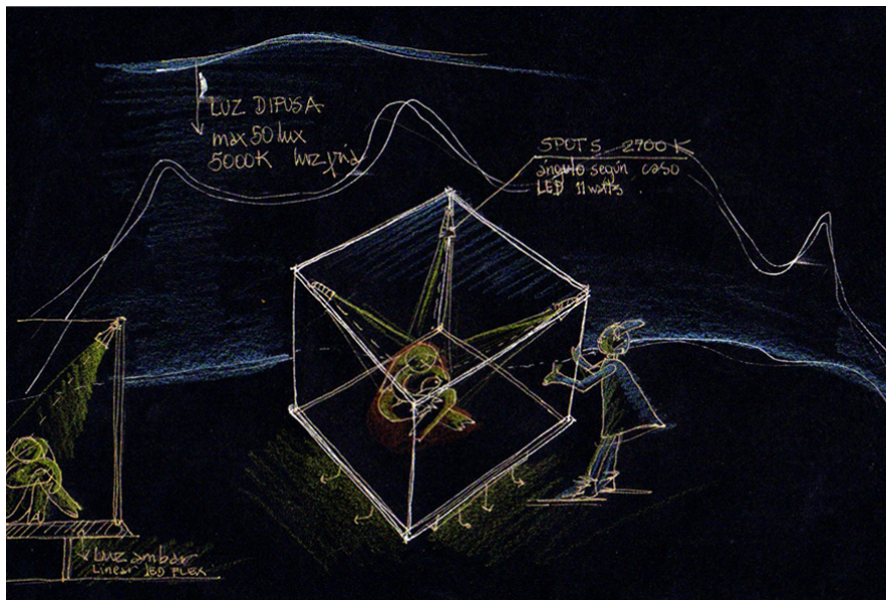 LUZ DIFUSA
max 50 lux
5000K luz fría
SPOTS 2700 K
ángulo según caso
LED 11 watts.
Luz ambar
Linear LED FLEX